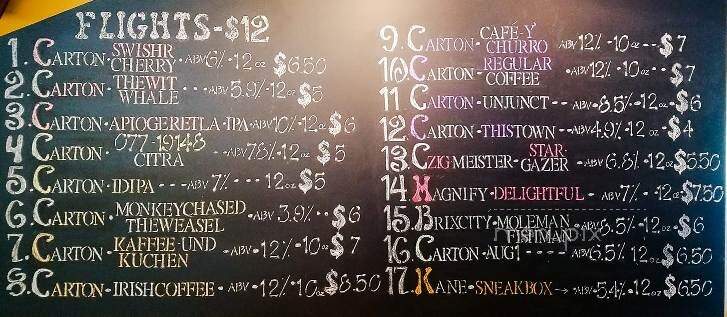 FLIGHTS-$12
1. CARTON-SWISHR CHERRY-ABV 6%-12oz $6.50
2. CARTON-THE WIT WHALE---ABV 5.9%-12oz $5
3. CARTON-APIOGERETLA-IPA-ABV 10%-12oz $6
4. CARTON 077-19148 CITRA --ABV 7.8%-12oz $5
5. CARTON-IDIPA---ABV 7%---12oz $5
6. CARTON-MONKEY CHASED THE WEASEL-ABV 3.9%--$6
7. CARTON-KAFFEE UND KUCHEN -ABV-12%-10oz $7
8. CARTON-IRISH COFFEE-ABV-12%-10oz $8.50
9. CARTON-CAFÉ-Y CHURRO ABV 12%-10oz--$7
10. CARTON-REGULAR COFFEE -ABV 12%-10oz--$7
11 CARTON-UNJUNCT--ABV-8.5%-12oz-$6
12. CARTON-THIS TOWN--ABV 4.9%-12oz-$4
13. CZIG-MEISTER-STAR-GAZER -ABV 6.8%-12oz $5.50
14. MAGNIFY-DELIGHTFUL-ABV 7%.-12oz $7.50
15. BRIXCITY-MOLEMAN FISHMAN-ABV 8.5%-12oz-$6
16. CARTON-AUG1----ABV 6.5% 12oz $6.50
17. KANE-SNEAKBOX→ABV-5.4%-12oz $6.50